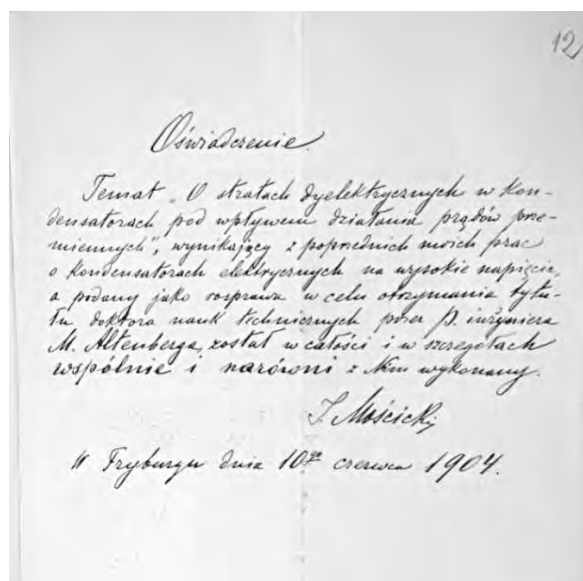 12
Oświadczenie.
Temat „O stratach dyelektrycznych w kon-
densatorach pod wpływem działania prądów prze-
miennych”, wynikający z poprzednich moich prac
o kondensatorach elektrycznych na wysokie napięcie,
a podany jako rozprawa w celu otrzymania tytu-
łu doktora nauk technicznych przez p. inżyniera
M. Altenberga, został w całości i w szczegółach
wspólnie i narówni z Nim wykonany.
I. Mościcki
W Fryburgu dnia 10go czerwca 1904.